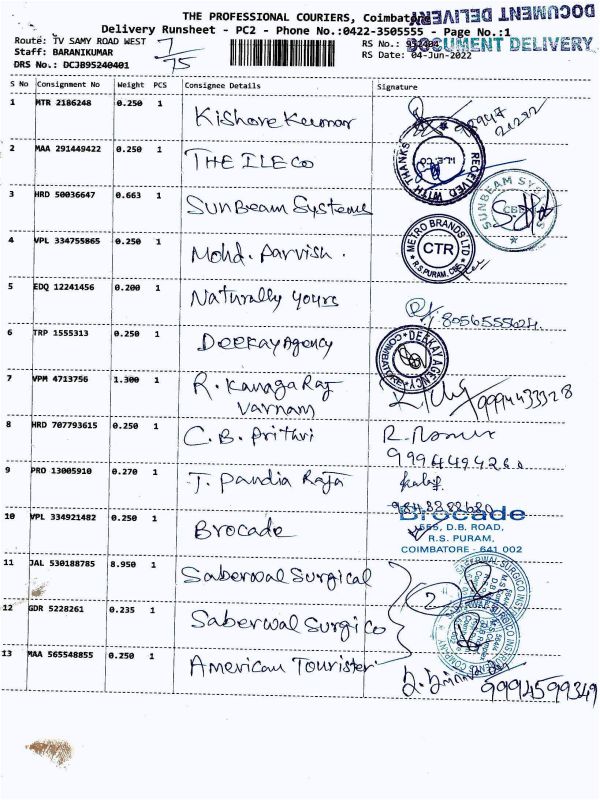 THE PROFESSIONAL COURIERS, Coimbatore
DOCUMENT DELIVERY
Delivery Runsheet - PC2 - Phone No.:0422-3505555 - Page No.:1
Route: TV SAMY ROAD WEST
RS No.:
DOCUMENT DELIVERY
Staff: BARANIKUMAR
RS Date: 04-Jun-2022
DRS No.: DCJB95240401
7/75
S No Consignment No Weight PCS Consignee Details Signature
1 MTR 2186248 0.250 1 Kishore Kumar
2 MAA 291449422 0.250 1 THE ILE CO
RECEIVED WITH THANKS
3 HRD 50036647 0.663 1 SunBeam Systems
SUNBEAM SYSTEMS CBE
4 VPL 334755865 0.250 1 Mohd. Parvish.
METRO BRANDS LTD CTR R.S PURAM, CBE
5 EDQ 12241456 0.200 1 Naturally yours
8056555624
6 TRP 1555313 0.250 1 Deekay Agency
DEEKAY AGENCY COIMBATORE
7 VPM 4713756 1.300 1 R. Kanaga Raj
Varnam
9994433328
8 HRD 707793615 0.250 1 C.B. Prithvi
9 PRO 13005910 0.270 1 J. Pandia Raja
10 VPL 334921482 0.250 1 Brocade
Brocade
555, D.B. ROAD,
R.S. PURAM,
COIMBATORE - 641 002
11 JAL 530188785 8.950 1 Saberwal Surgical
2
12 GDR 5228261 0.235 1 Saberwal Surgico
13 MAA 565548855 0.250 1 American Tourister.
9994599349